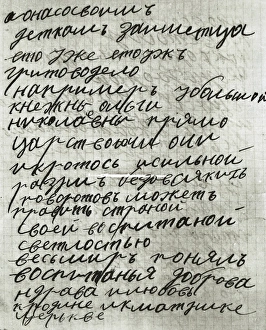 а она со своимъ
деткамъ займетца
ето уже етожъ
григово дело
например у большой
княжны ольги
николавни прямо
царствоючи они
икротось исильной
разумъ безовсякихъ
говоротовъ можетъ
править страной
своей воспитаной
светлостью
весьмиръ понялъ
воспитанья доброва
ндрава илюбовы
кродине икматушке
церькве